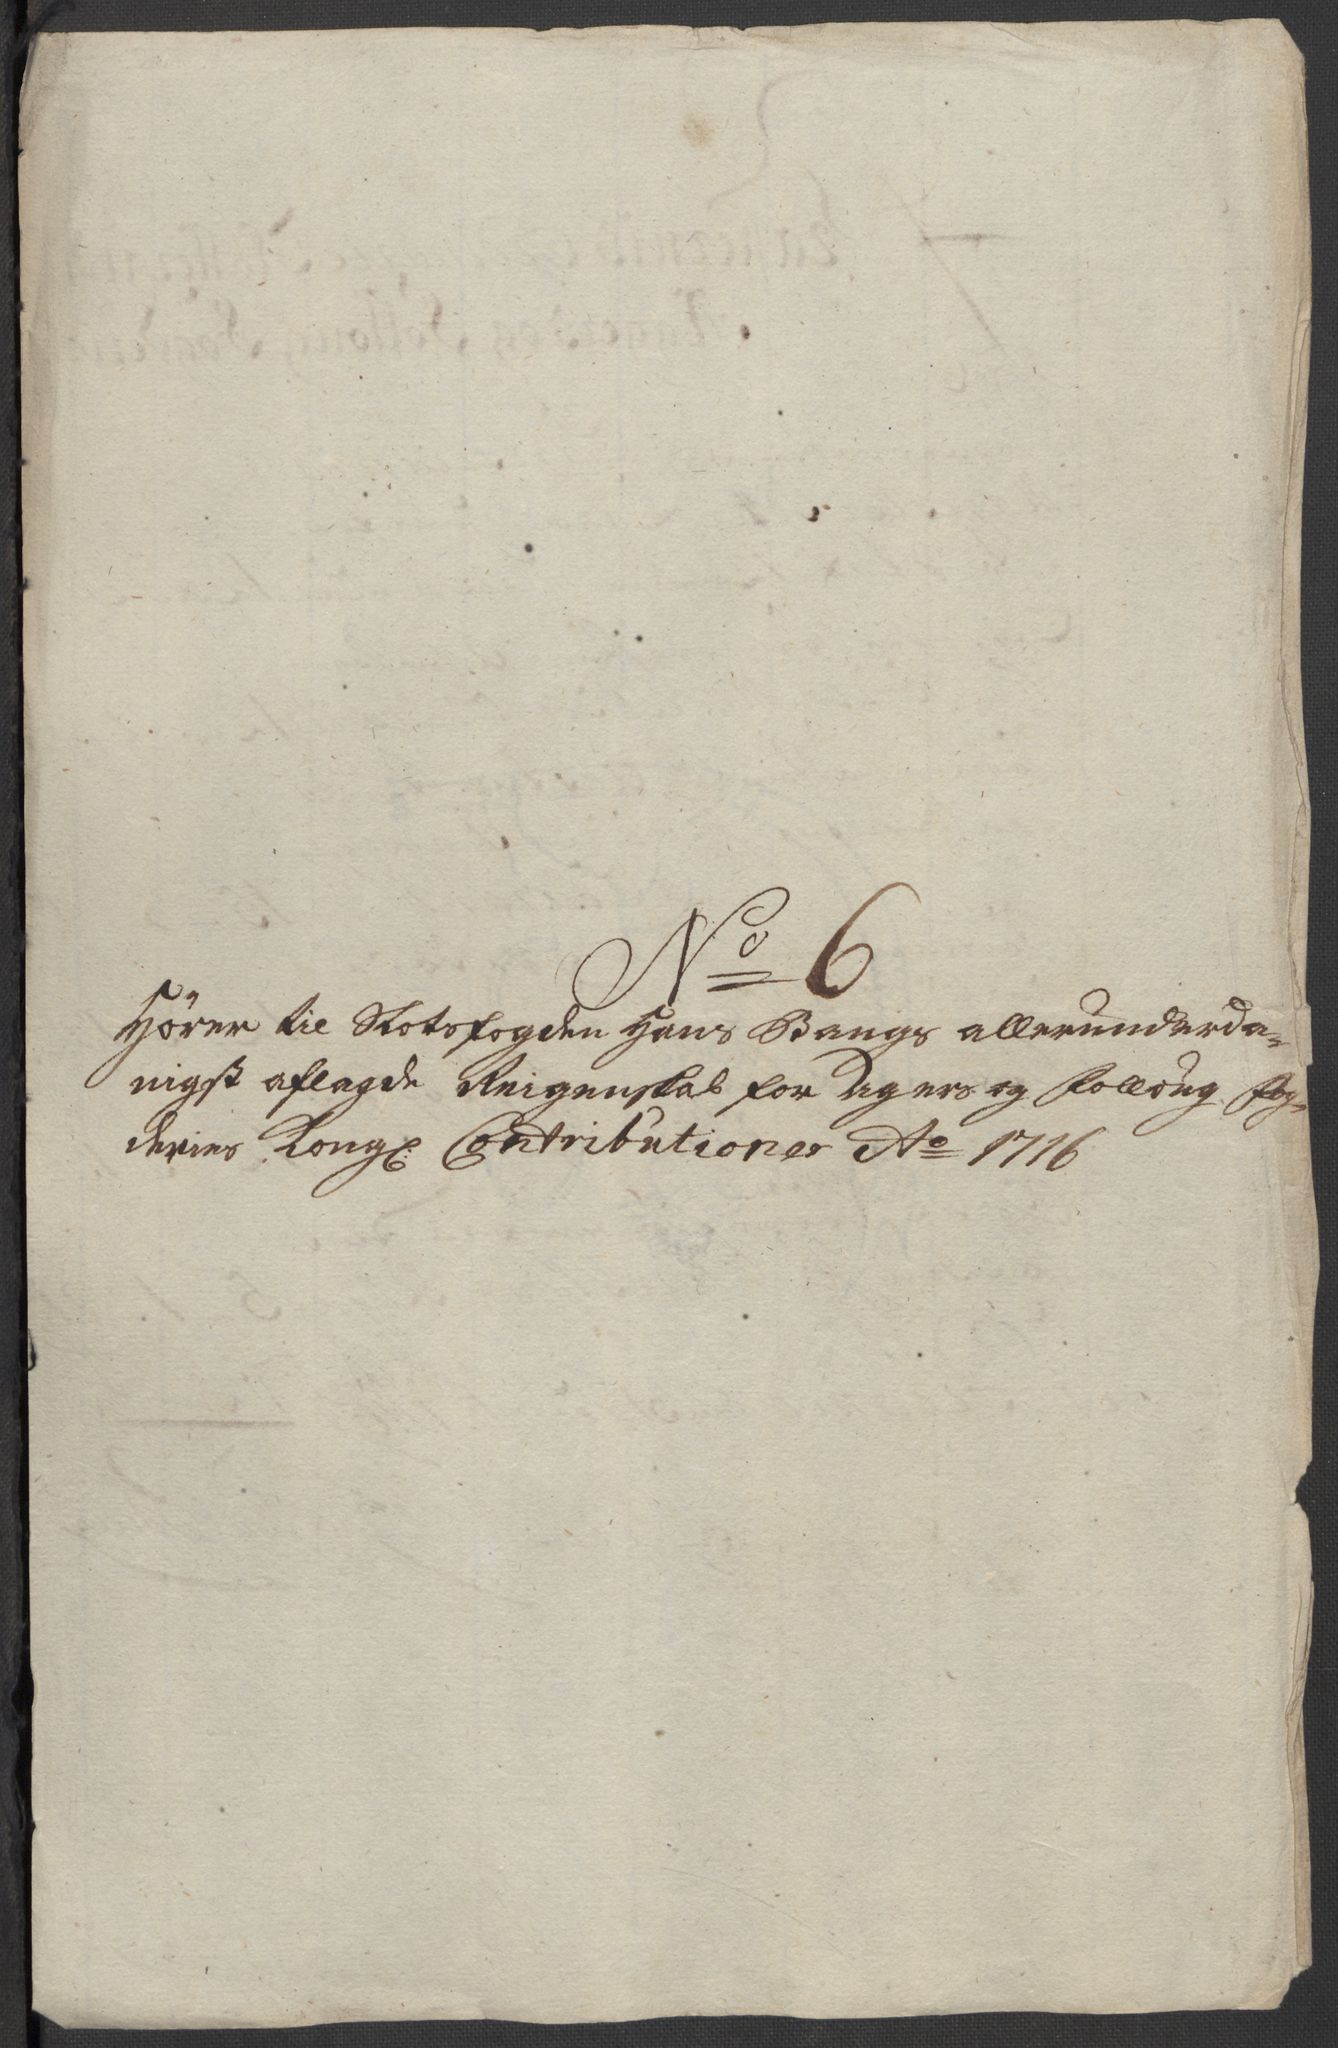 No 6
Hörer til Slotsfogden Hans Bangs allerunderda-
nigst aflagde Reigenskab for Agers og Folloug Fog-
deries Kongl: Contributioner Ao 1716